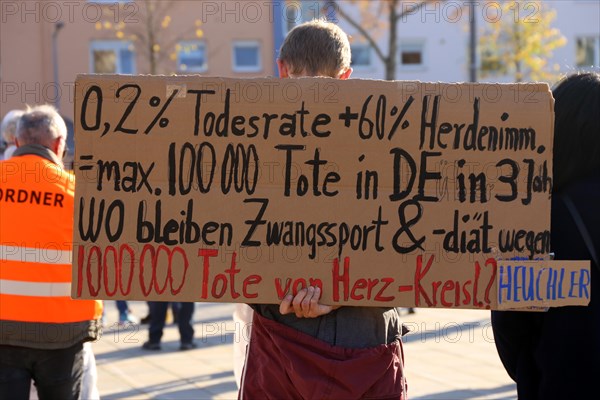 ORDNER
0,2% Todesrate +60% Herdenimm.
=max. 100000 Tote in DE in 3 Jah
WO bleiben Zwangssport & -diät wegen
1000000 Tote von Herz-Kreisl.?
HEUCHLER